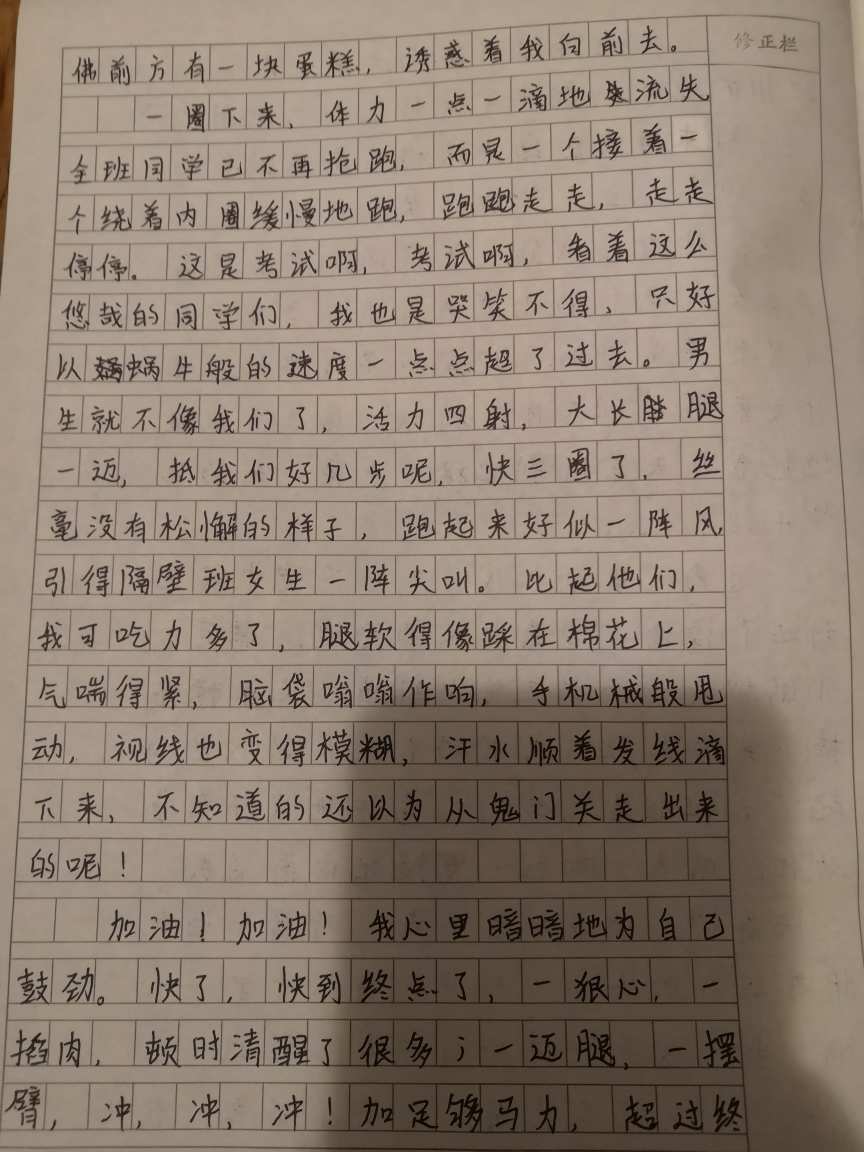 佛前方有一块蛋糕，诱惑着我向前去。
修正栏
一圈下来，体力一点一滴地流失
全班同学已不再抢跑，而是一个接着一
个绕着内圈缓慢地跑，跑跑走走，走走
停停。这是考试啊，考试啊，看着这么
悠哉的同学们，我也是哭笑不得，只好
以蜗牛般的速度一点点超了过去。男
生就不像我们了，活力四射，大长腿
一迈，抵我们好几步呢，快三圈了，丝
毫没有松懈的样子，跑起来好似一阵风，
引得隔壁班女生一阵尖叫。比起他们，
我可吃力多了，腿软得像踩在棉花上，
气喘得紧，脑袋嗡嗡作响，手机械般甩
动，视线也变得模糊，汗水顺着发线滴
下来，不知道的还以为从鬼门关走出来
的呢！
加油！加油！我心里暗暗地为自己
鼓劲。快了，快到终点了，一狠心，一
掐肉，顿时清醒了很多；一迈腿，一摆
臂，冲，冲，冲！加足够马力，超过终